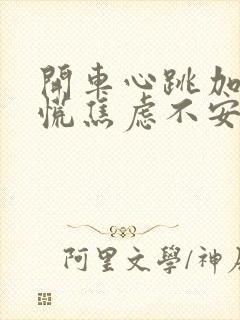 開車心跳加
慌焦虑不安
阿里文學/神